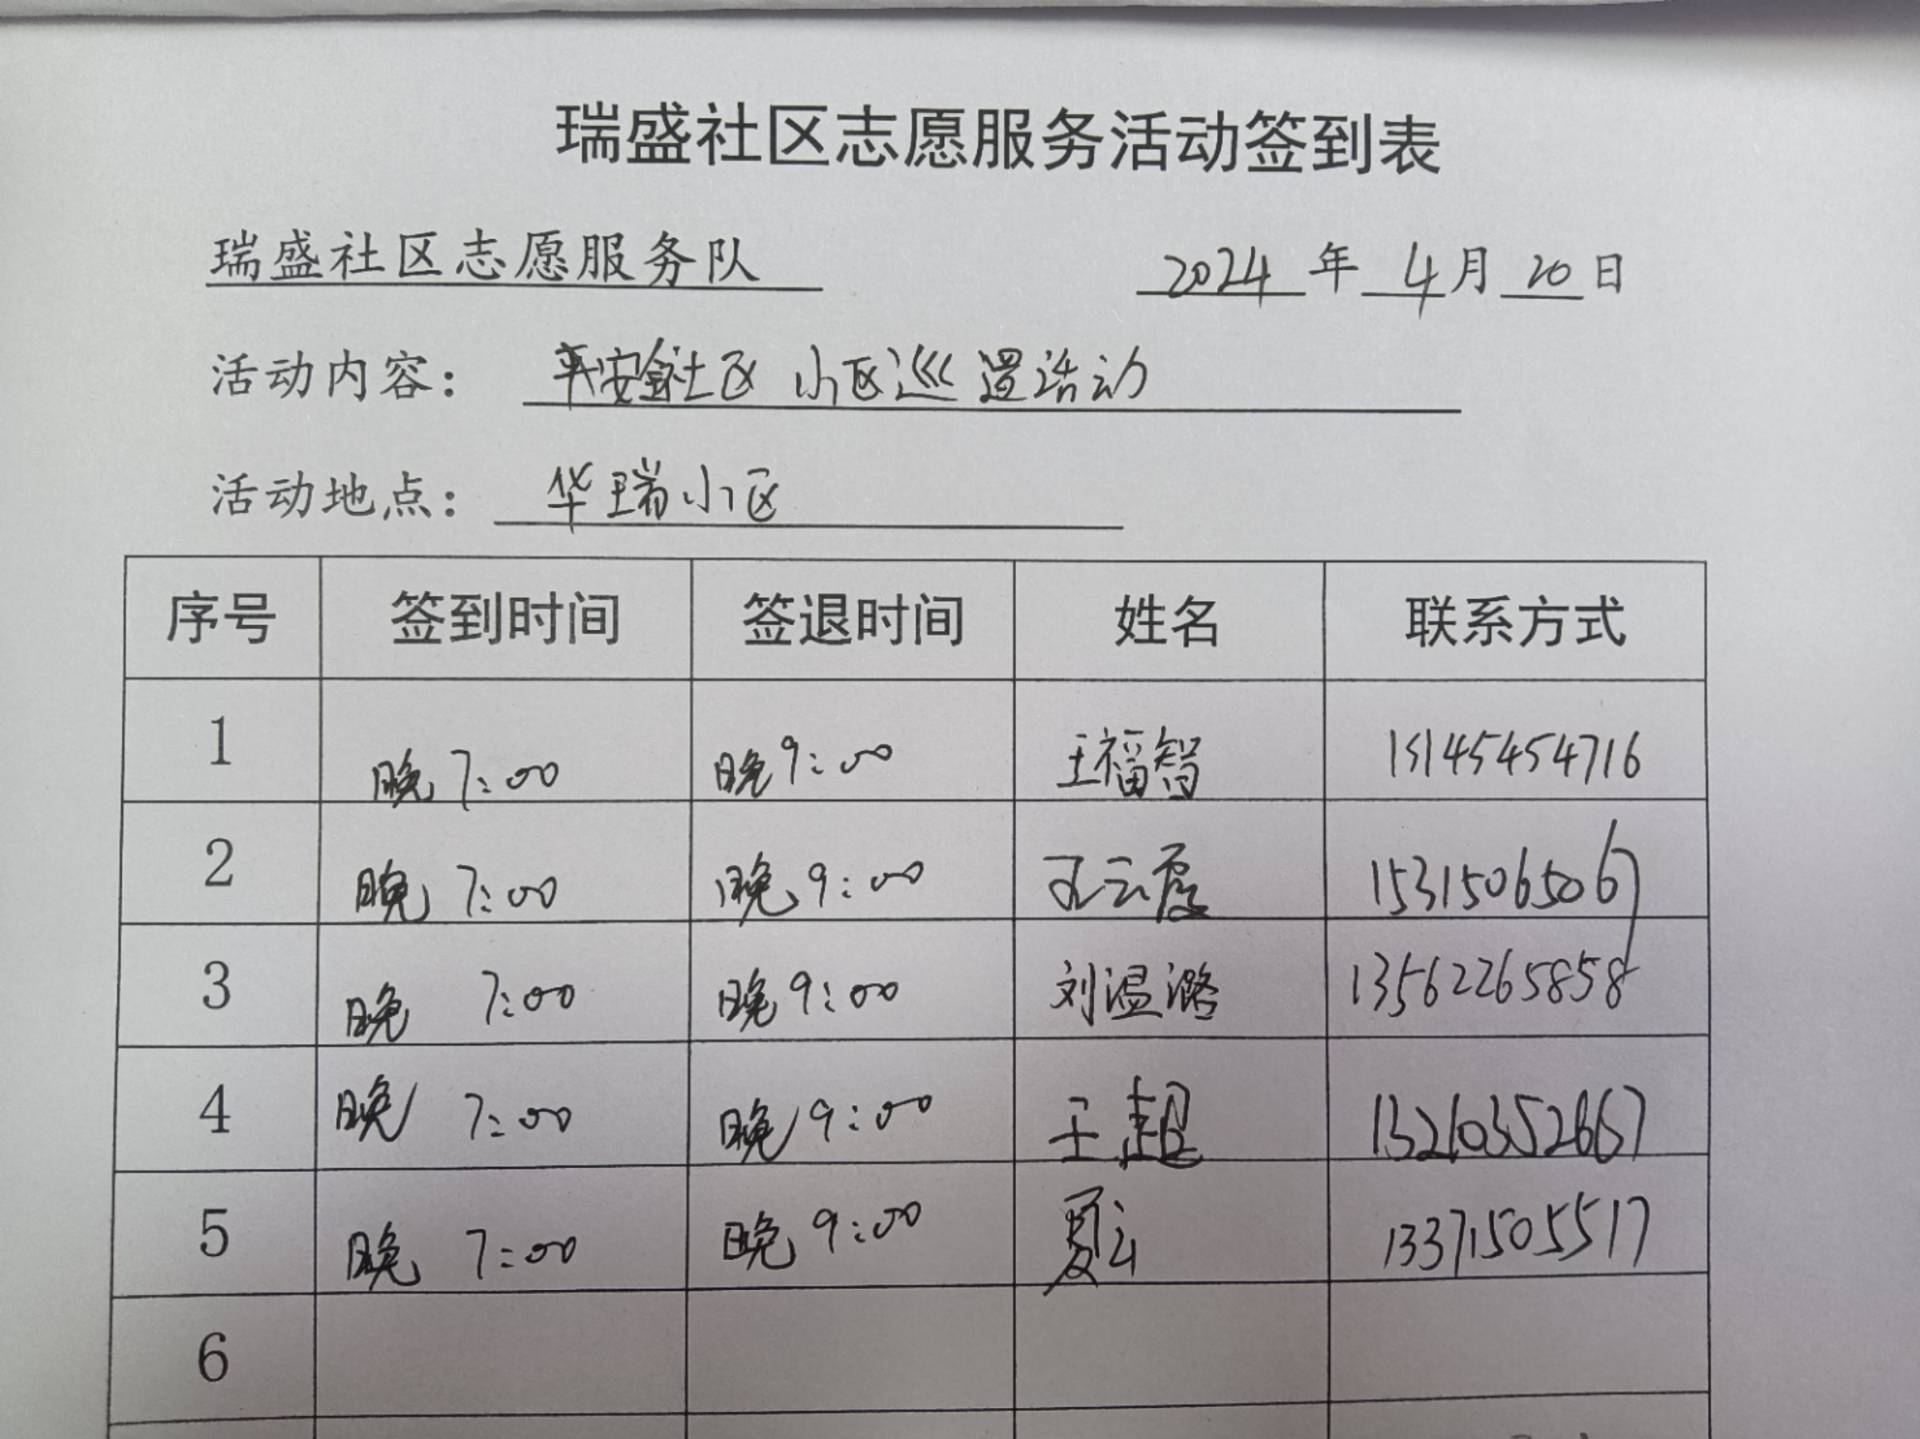 瑞盛社区志愿服务活动签到表
瑞盛社区志愿服务队 2024年4月20日
活动内容：平安社区 小区巡逻活动
活动地点：华瑞小区
序号 签到时间 签退时间 姓名 联系方式
1 晚7:00 晚9:00 王福智 15145454716
2 晚7:00 晚9:00 王云霞 15315065067
3 晚7:00 晚9:00 刘温潞 13562265858
4 晚7:00 晚9:00 王超 13210352667
5 晚7:00 晚9:00 夏云 13371505517
6